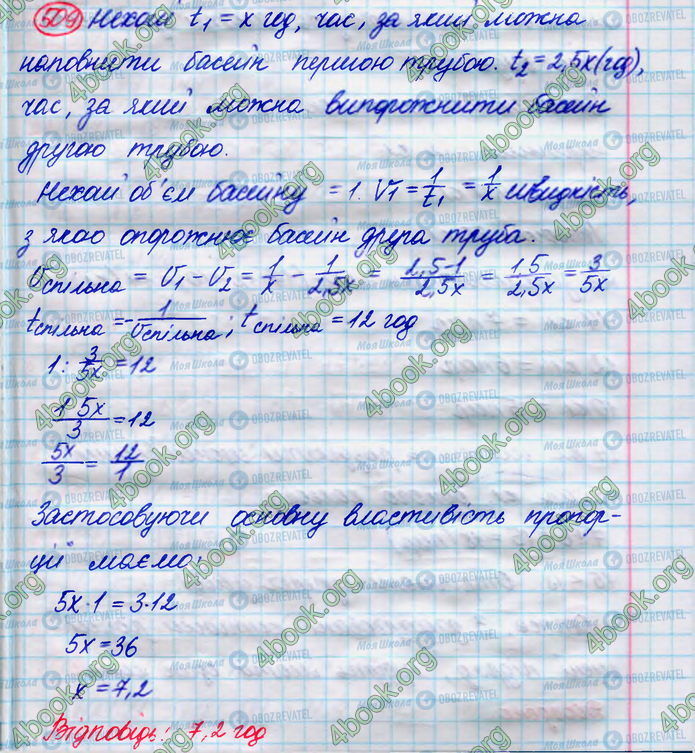 509 Нехай t₁ = x год, час, за який можна
наповнити басейн першою трубою. t₂ = 2,5x (год),
час, за який можна випорожнити басейн
другою трубою.
Нехай об'єм басейну = 1. V1 = 1/t₁ = 1/x швидкість,
з якою опорожнює басейн друга труба.
Vспільна = V₁ - V₂ = 1/x - 1/2,5x = 2,5-1/2,5x = 1,5/2,5x = 3/5x
tспільна = 1/Vспільна; tспільна = 12 год
1 : 3/5x = 12
1 5x/3 = 12
5x/3 = 12/1
Застосовуючи основну властивість пропор-
ції маємо:
5x · 1 = 3 · 12
5x = 36
x = 7,2
Відповідь: 7,2 год
4book.org
Моя Школа
OBOZREVATEL